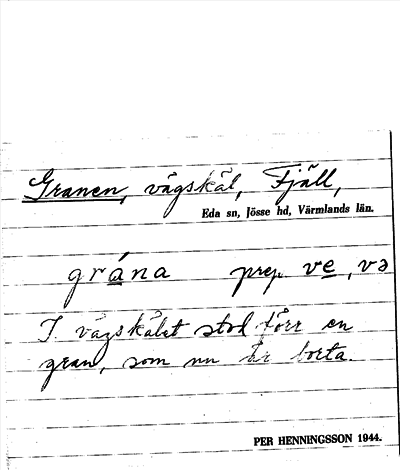 Granen, vägskäl, Fjäll,
Eda sn, Jösse hd, Värmlands län.
grána prep ve, və
I vägskälet stod förr en
gran, som nu är borta.
PER HENNINGSSON 1944.